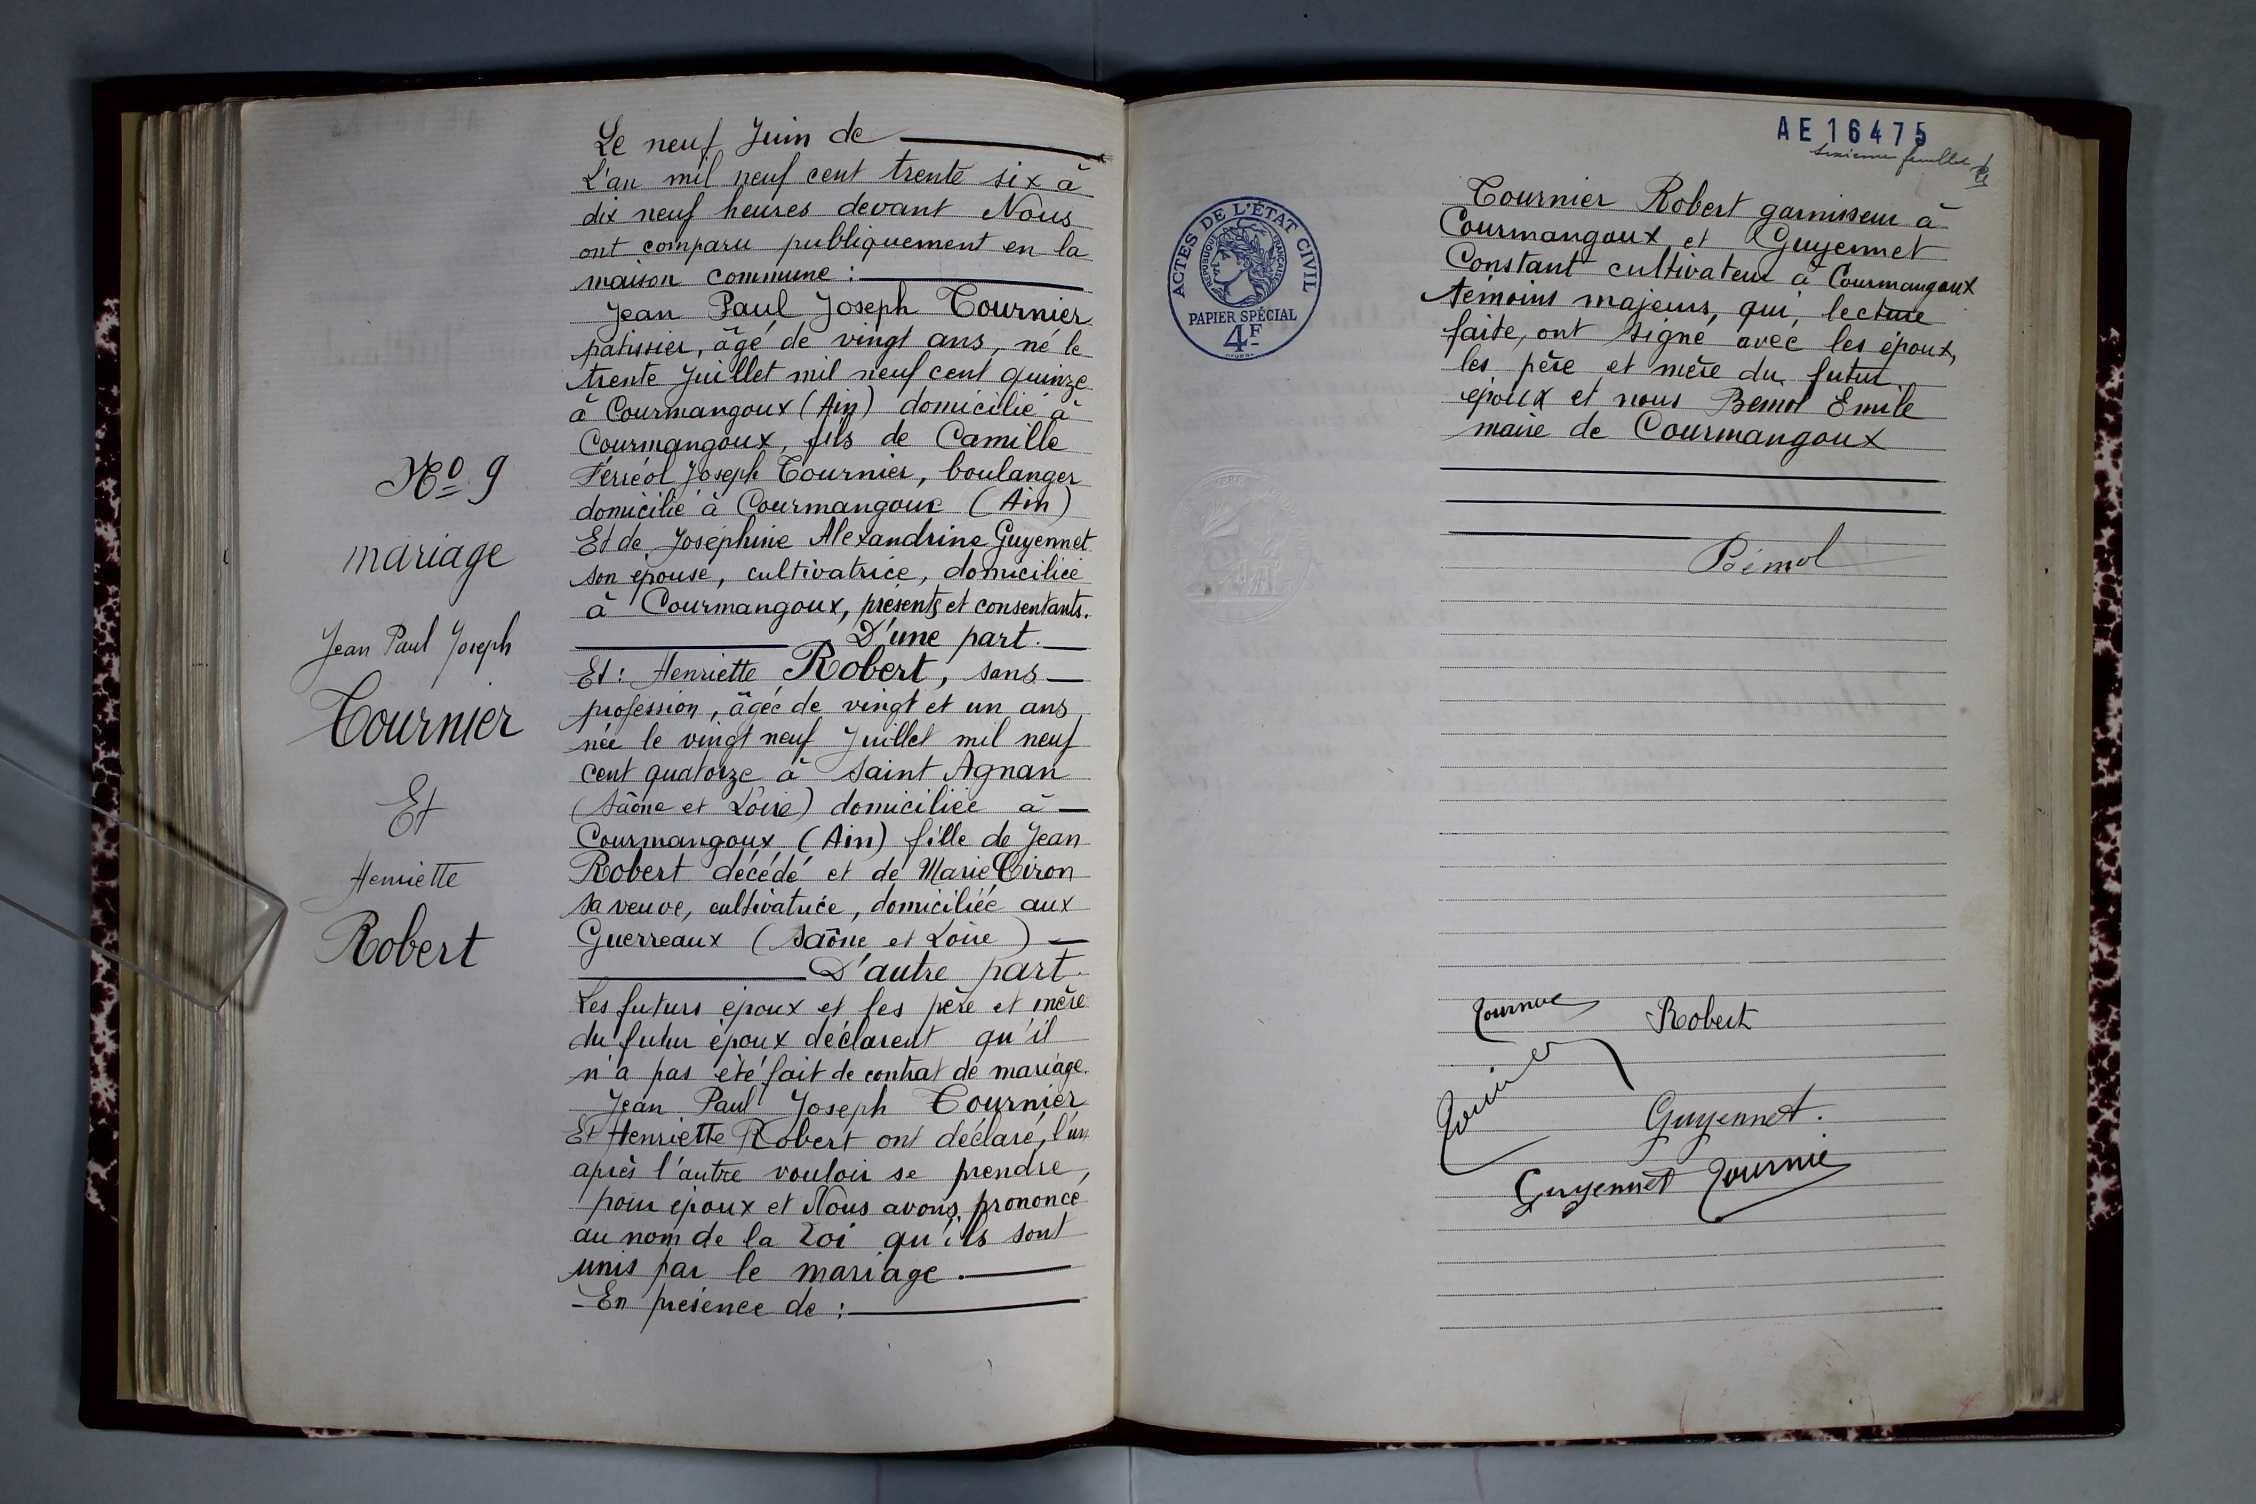 N° 9
mariage
Jean Paul Joseph
Tournier
Et
Henriette
Robert
Le neuf Juin de
L'an mil neuf cent trente six à
dix neuf heures devant Nous
ont comparu publiquement en la
maison commune :
Jean Paul Joseph Tournier
patissier, âgé de vingt ans, né le
trente Juillet mil neuf cent quinze
à Courmangoux (Ain) domicilié à
Courmangoux, fils de Camille
Ferréol Joseph Tournier, boulanger
domicilié à Courmangoux (Ain)
Et de Joséphine Alexandrine Guyennet
son épouse, cultivatrice, domiciliée
à Courmangoux, présents et consentants.
D'une part.
Et : Henriette Robert, sans
profession, âgée de vingt et un ans
née le vingt neuf Juillet mil neuf
cent quatorze à Saint Agnan
(Saône et Loire) domiciliée à
Courmangoux (Ain) fille de Jean
Robert décédé et de Marie Ciron
sa veuve, cultivatrice, domiciliée aux
Guerreaux (Saône et Loire)
D'autre part.
Les futurs époux et les père et mère
du futur époux déclarent qu'il
n'a pas été fait de contrat de mariage.
Jean Paul Joseph Tournier
Et Henriette Robert ont déclaré, l'un
après l'autre vouloir se prendre,
pour époux et Nous avons prononcé
au nom de la Loi qu'ils sont
unis par le mariage.
- En présence de :
AE16475
sixième feuillet
ACTES DE L'ÉTAT CIVIL
RÉPUBLIQUE FRANÇAISE
PAPIER SPÉCIAL
4F
Tournier Robert garnisseur à
Courmangoux et Guyennet
Constant cultivateur à Courmangoux
témoins majeurs, qui, lecture
faite, ont signé avec les époux,
les père et mère du futur
époux et nous Bémol Emile
maire de Courmangoux
Bémol
Tournier
Robert
Tournier
Guyennet.
Guyennet Tournier